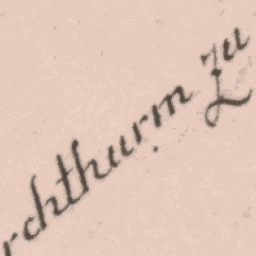 rchthurm zu